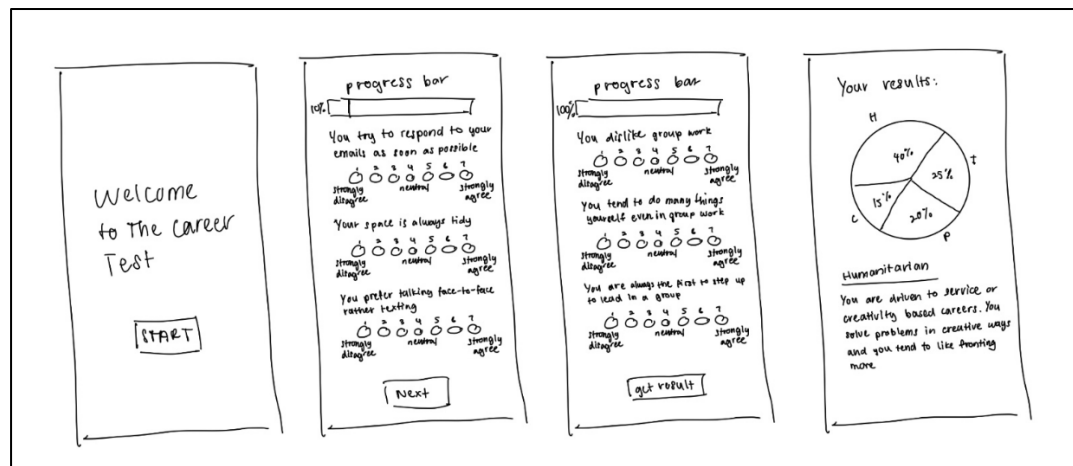 Welcome
to The career
Test
START
progress bar
10%
You try to respond to your
emails as soon as possible
1 2 3 4 5 6 7
strongly disagree neutral strongly agree
Your space is always tidy
1 2 3 4 5 6 7
strongly disagree neutral strongly agree
You prefer talking face-to-face
rather texting
1 2 3 4 5 6 7
strongly disagree neutral strongly agree
Next
progress bar
100%
You dislike group work
1 2 3 4 5 6 7
strongly disagree neutral strongly agree
You tend to do many things
yourself even in group work
1 2 3 4 5 6 7
strongly disagree neutral strongly agree
You are always the first to step up
to lead in a group
1 2 3 4 5 6 7
strongly disagree neutral strongly agree
get result
Your results:
H
40%
25% T
C 15%
20%
P
Humanitarian
You are driven to service or
creativity based careers. You
solve problems in creative ways
and you tend to like fronting
more